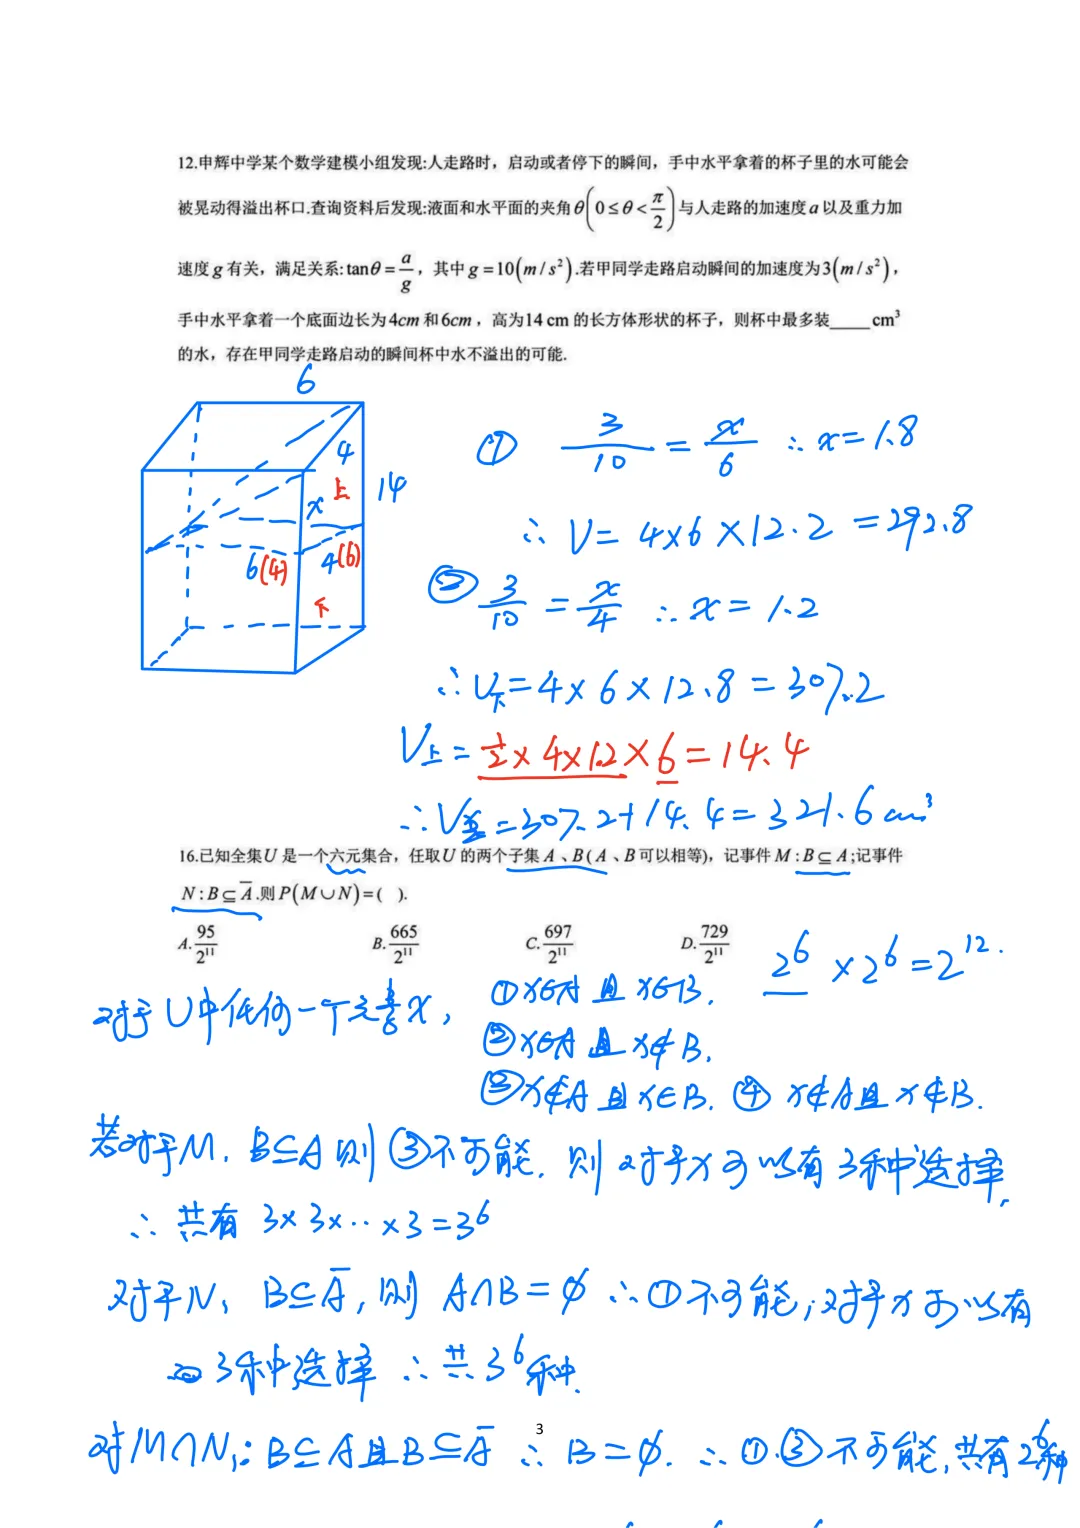 12.申辉中学某个数学建模小组发现:人走路时，启动或者停下的瞬间，手中水平拿着的杯子里的水可能会
被晃动得溢出杯口.查询资料后发现:液面和水平面的夹角θ(0≤θ<π/2)与人走路的加速度a以及重力加
速度g有关，满足关系:tanθ=a/g，其中g=10(m/s²).若甲同学走路启动瞬间的加速度为3(m/s²)，
手中水平拿着一个底面边长为4cm和6cm，高为14 cm的长方体形状的杯子，则杯中最多装____cm³
的水，存在甲同学走路启动的瞬间杯中水不溢出的可能.
6
4
上
x
14
6(4)
4(6)
下
① 3/10=x/6 ∴x=1.8
∴V=4×6×12.2=292.8
② 3/10=x/4 ∴x=1.2
∴V下=4×6×12.8=307.2
V上=1/2×4×1.2×6=14.4
∴V总=307.2+14.4=321.6cm³
16.已知全集U是一个六元集合，任取U的两个子集A、B(A、B可以相等)，记事件M:B⊆A;记事件
N:B⊆A̅.则P(M∪N)=( ).
A.95/2¹¹ B.665/2¹¹ C.697/2¹¹ D.729/2¹¹
2⁶×2⁶=2¹².
对于U中任何一个元素x，
①x∈A且x∈B.
②x∈A且x∉B.
③x∉A且x∈B. ④x∉A且x∉B.
若对于M，B⊆A则③不可能.则对于x可以有3种选择.
∴共有3×3×‥×3=3⁶
对于N，B⊆A̅，则A∩B=∅∴①不可能;对于x可以有
3种选择∴共3⁶种.
3
对M∩N:B⊆A且B⊆A̅∴B=∅.∴①.③不可能，共有2⁶种